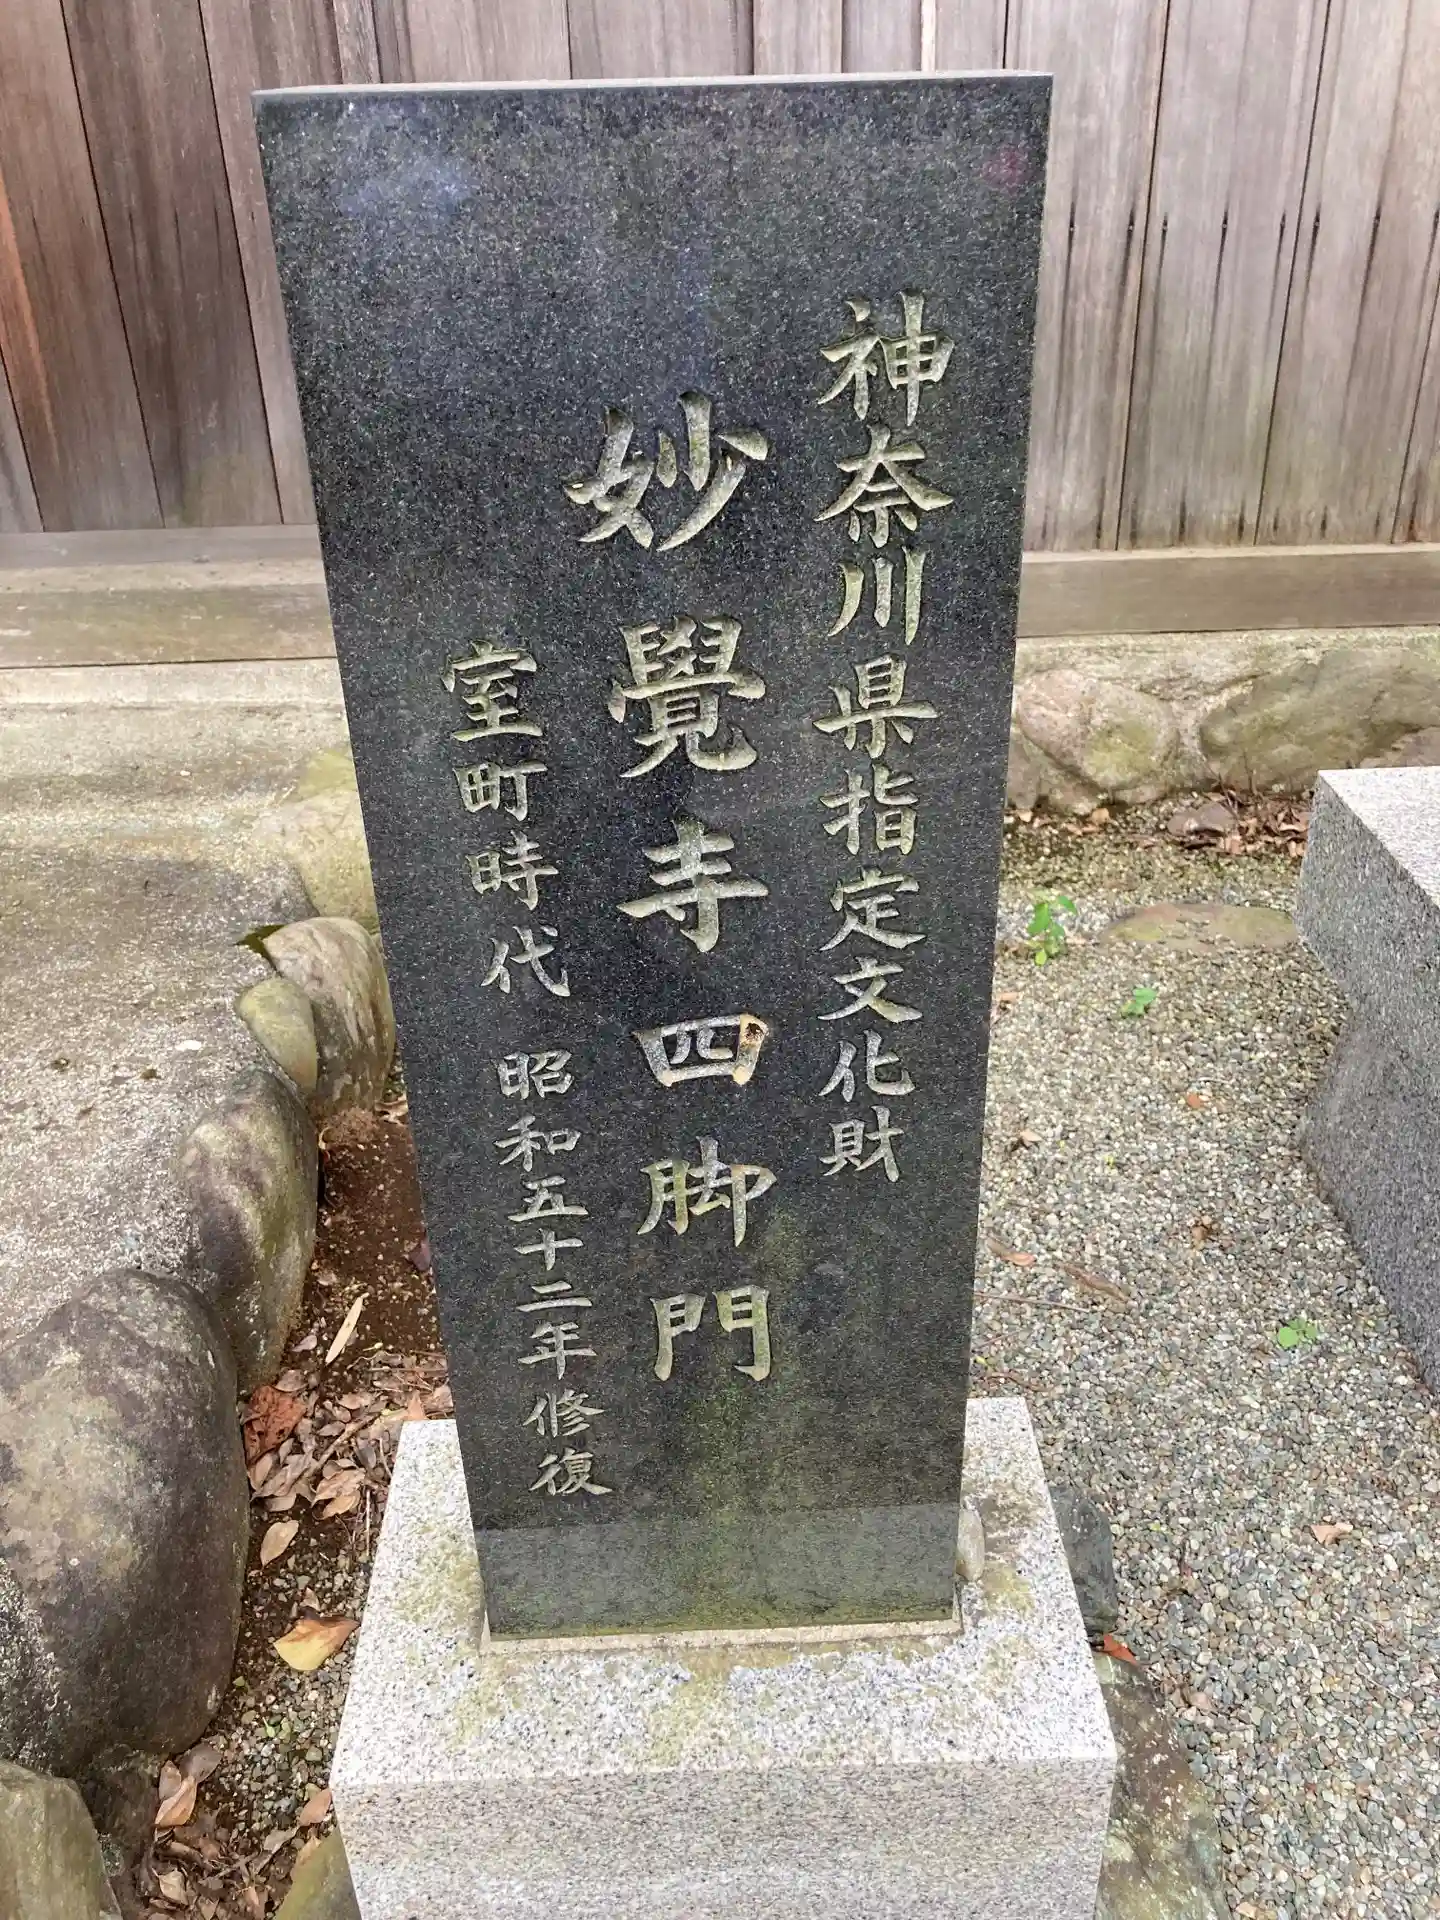 神奈川県指定文化財
妙覺寺四脚門
室町時代 昭和五十二年修復